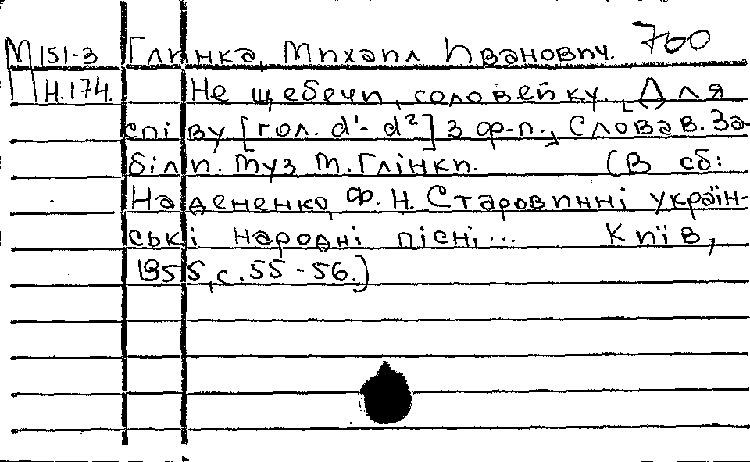 М 151-3 Глинка, Михаил Иванович. 700
Н.174. Не щебечи, соловейку. [Для
співу [гол. d¹- d²] з ф-п., Слова В. За-
біли. Муз М. Глінки. (В сб:
Надененко, Ф. Н. Старовинні україн-
ські народні пісні... Київ,
1955, с. 55-56.)